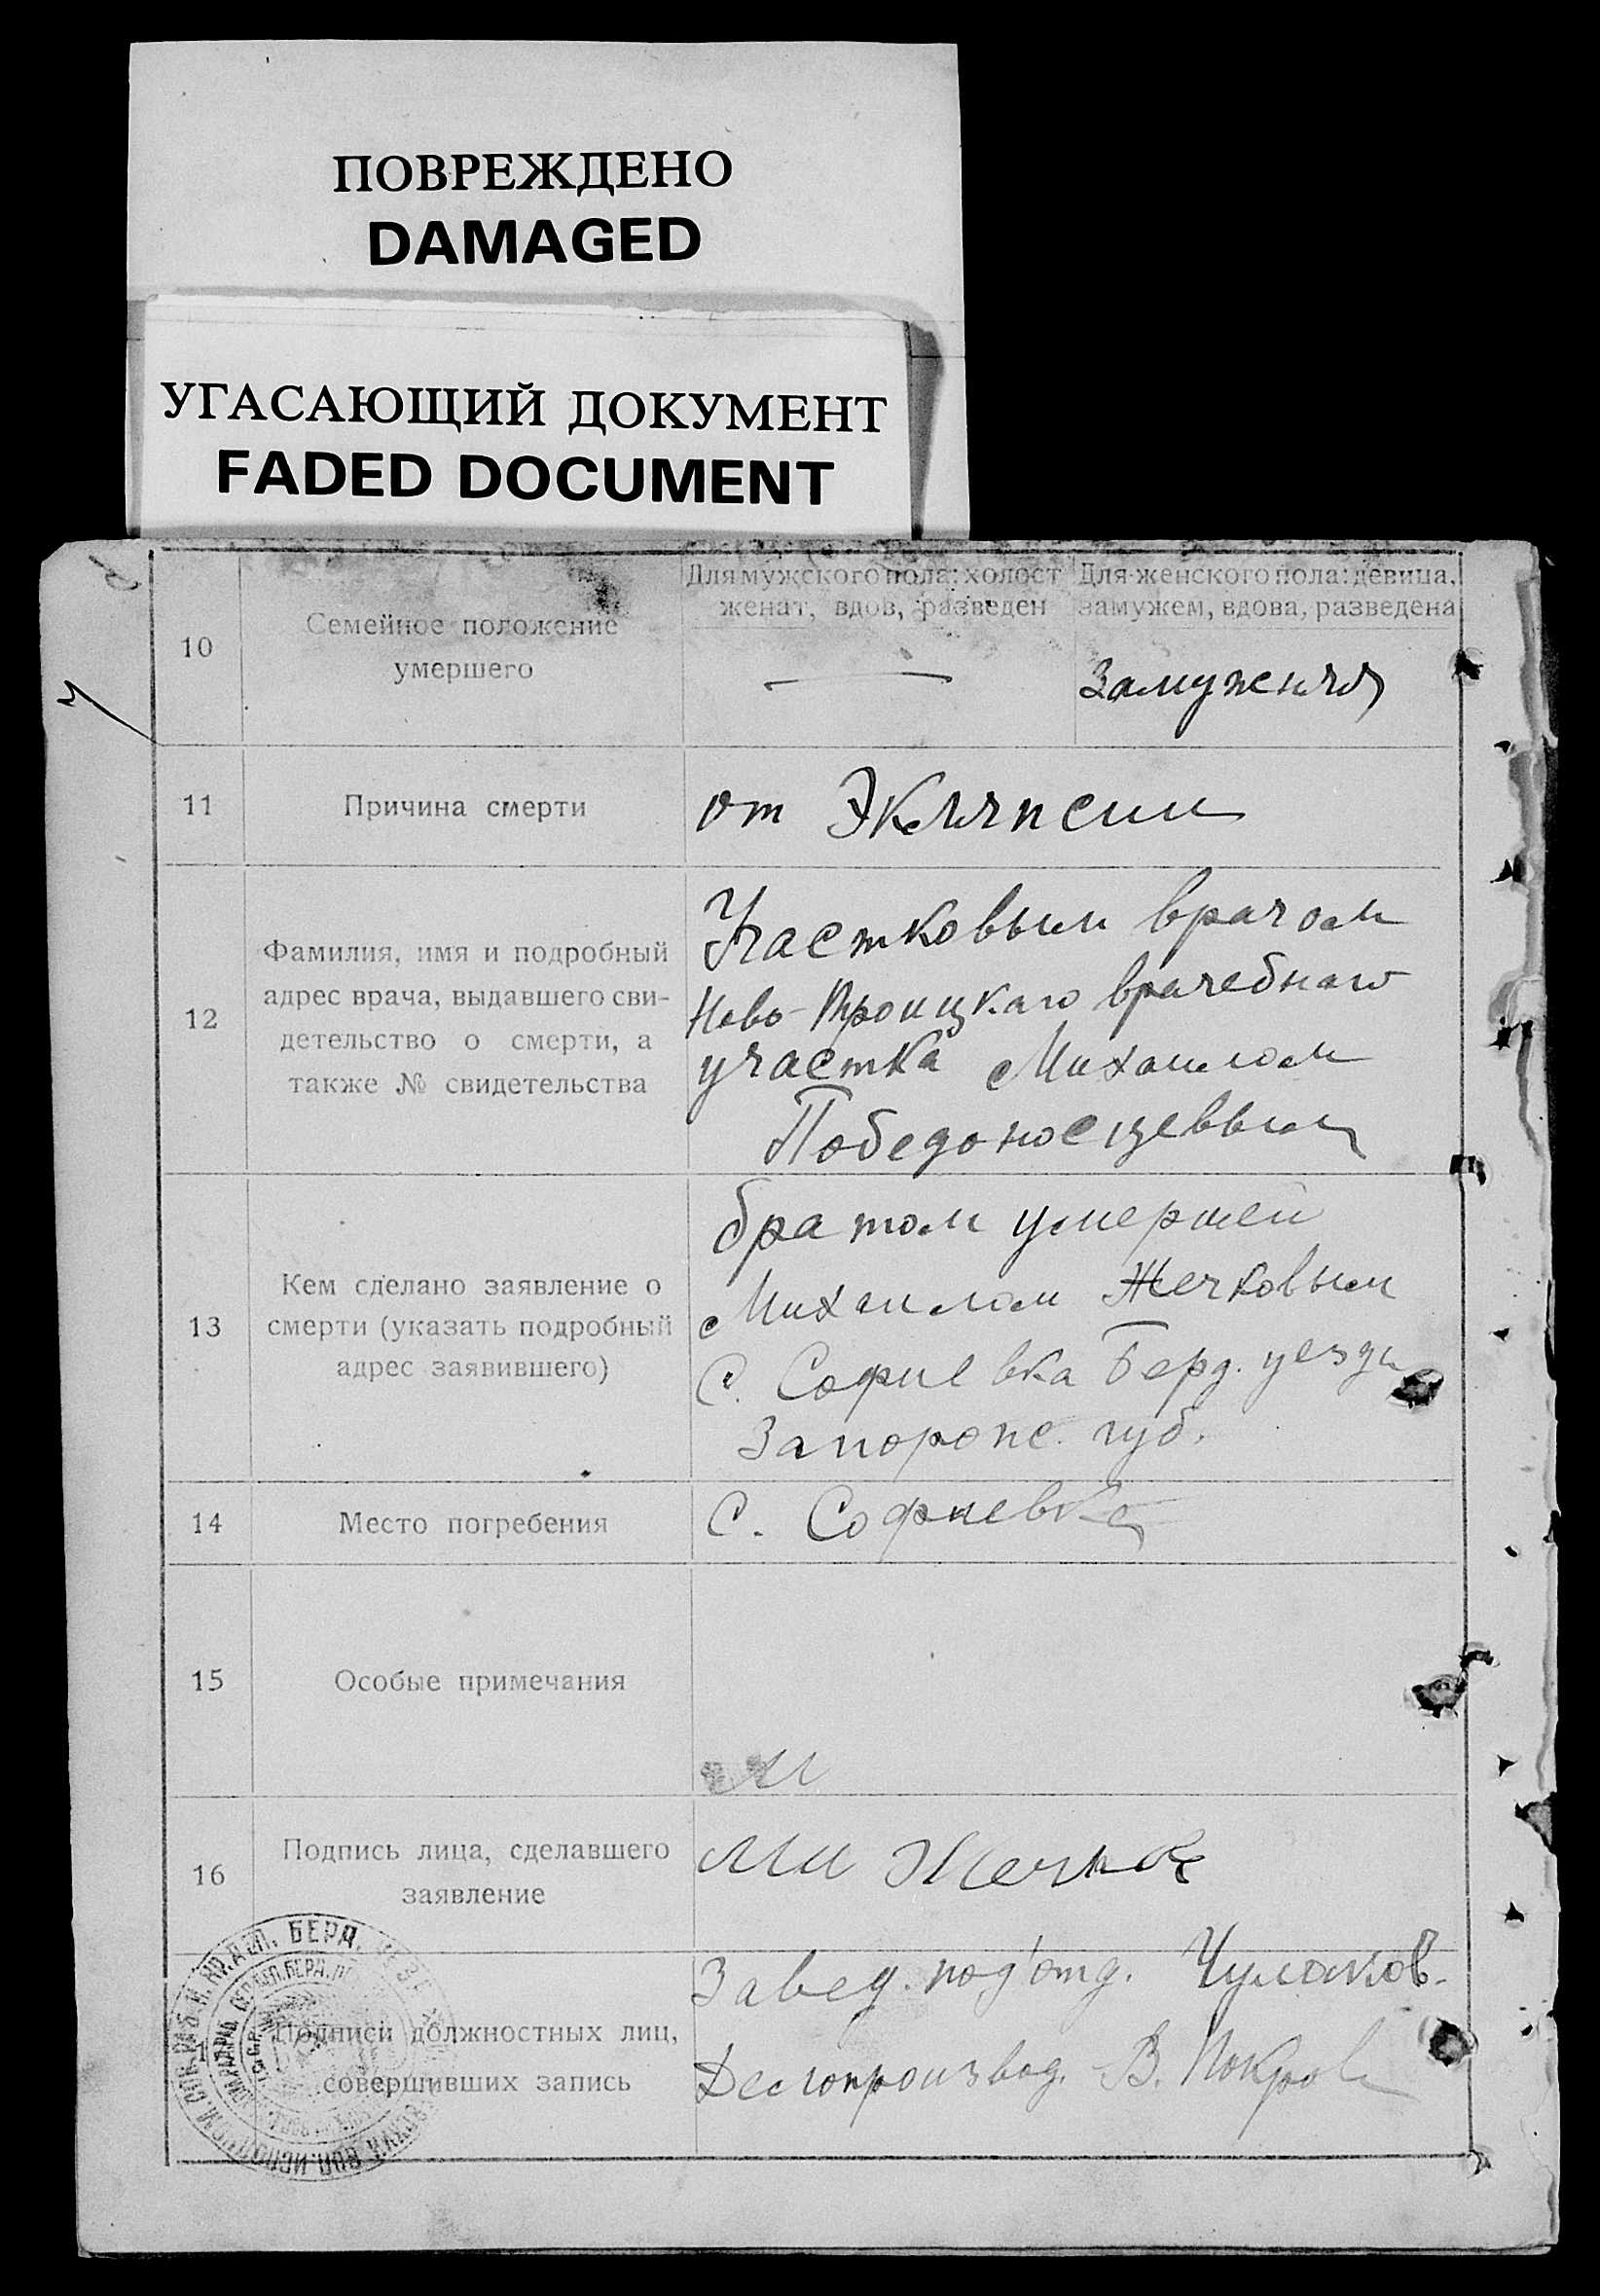 ПОВРЕЖДЕНО
DAMAGED
УГАСАЮЩИЙ ДОКУМЕНТ
FADED DOCUMENT
10
Семейное положение
умершего
Для мужского пола: холост
женат, вдов, разведен
Для женского пола: девица,
замужем, вдова, разведена
Замужняя
11
Причина смерти
от Эклямпсии
12
Фамилия, имя и подробный
адрес врача, выдавшего сви-
детельство о смерти, а
также № свидетельства
Участковым врачом
Ново-Троицкаго врачебнаго
участка Михаилом
Победоносцевым
13
Кем сделано заявление о
смерти (указать подробный
адрес заявившего)
братом умершей
Михаилом Жечковым
С. Софиевка Берд. уезда
Запорож. губ.
14
Место погребения
С. Софиевка
15
Особые примечания
16
Подпись лица, сделавшего
заявление
Ми Жечков
Подписи должностных лиц,
совершивших запись
Завед. под'отд. Чумаков.
Делопроизвод. В. Покров
БЕРД.